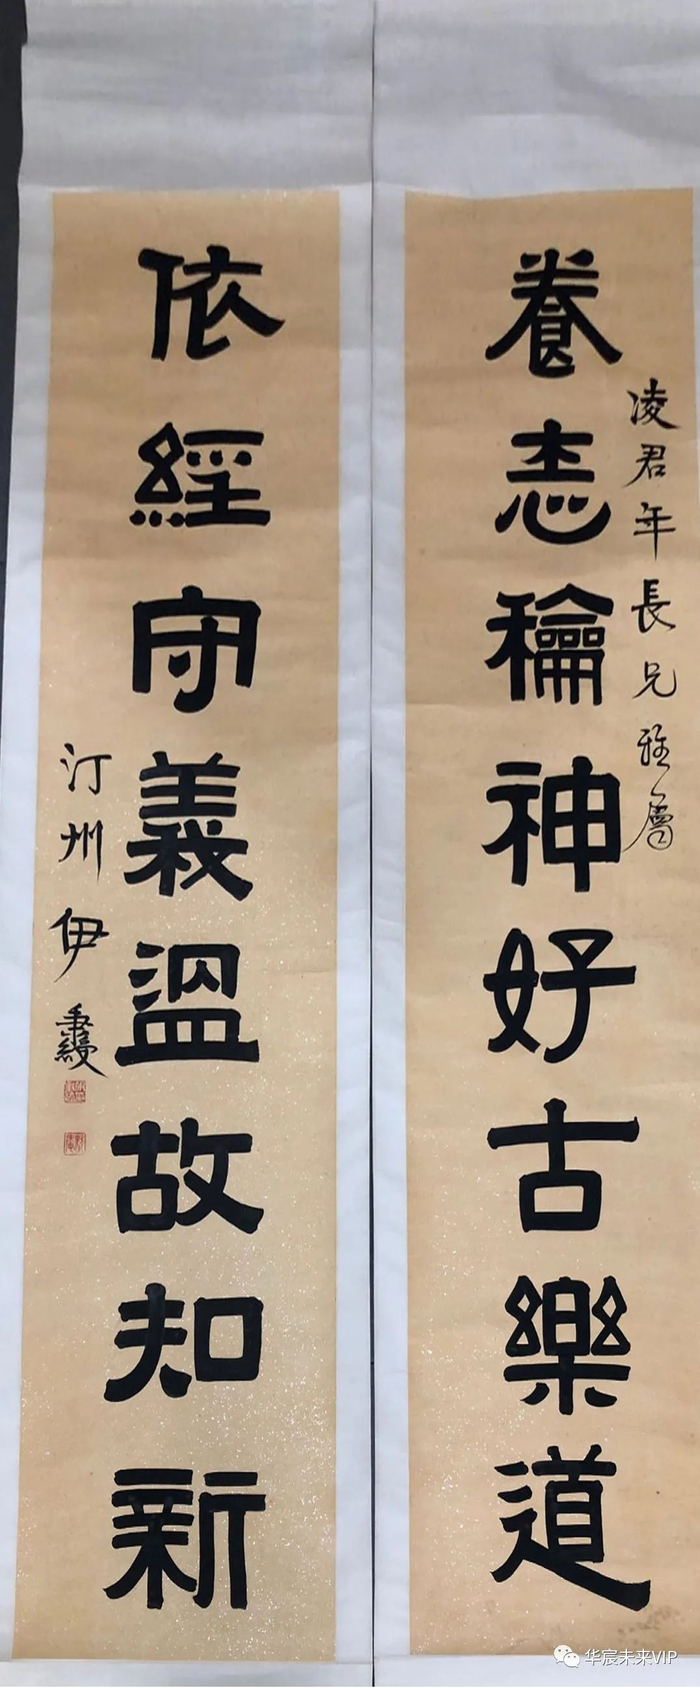 養志龢神好古樂道
凌君年長兄雅屬
依經守義溫故知新
汀州伊秉綬
华宸未来VIP